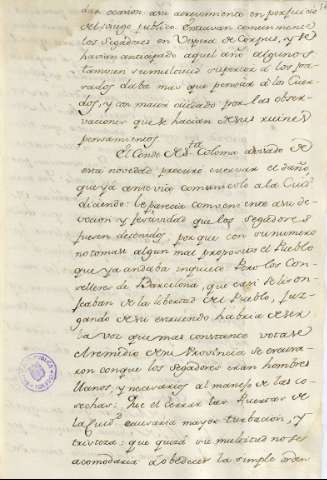 dar camino asu atrevimiento en perjuicio
del sosiego publico. Entravan comunmente
los Segadores en Vispera de Corpus, y se
havian anticipado aquel año algunos:
tambien su multitud superior a los pa-
sados daba mas que pensar a los Cuer-
dos, y con mayor cuidado por las obser-
vaciones que se hacian de sus ruines
pensamientos.
El Conde de S.ta Coloma avisado de
esta novedad procuró escusar el daño
que ya antevia comunicolo a la Ciud.d
diciendo: Le parecia conveniente a su de-
vocion y festividad que los Segadores
fuesen detenidos, porque con su numero
no tomase algun mal proposito el Pueblo
que ya andaba inquieto. Pero los Con-
selleres de Barcelona, que casi se lison-
jeaban de la libertad del Pueblo, juz-
gando de su estruendo habria de ser
la voz que mas constante votase
el remedio de su Provincia se escusa-
ron con que los Segadores eran hombres
llanos, y necesarios al manejo de las co-
sechas: Que el cerrar las Puertas de
la Ciud.d causaria mayor turbacion, y
tristeza: que quizá su multitud no se
acomodaria a obedecer la simple orden